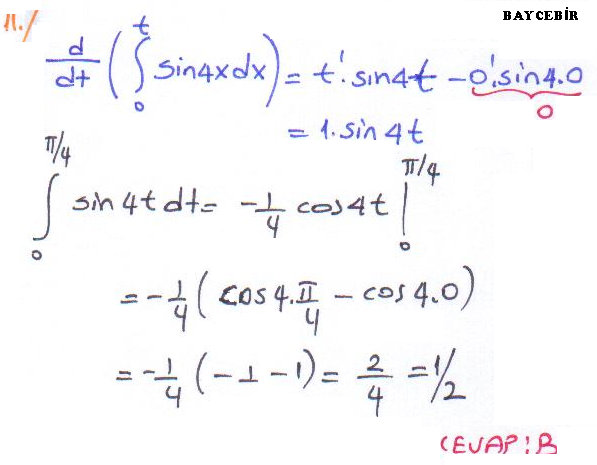 11./
BAYCEBİR
d/dt (∫₀ᵗ sin4xdx) = t'.sin4t - 0'.sin4.0
0
= 1.sin 4t
∫₀^π/4 sin 4t dt = -1/4 cos4t |₀^π/4
= -1/4 (cos4.π/4 - cos4.0)
= -1/4 (-1-1) = 2/4 = 1/2
CEVAP:B